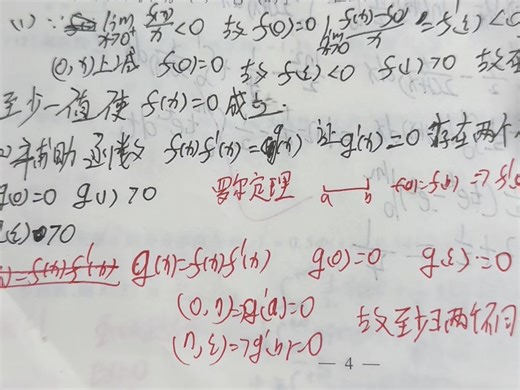 (1) ∵ lim x→0⁺ f(x)/x <0 故 f(0)=0 lim x→0⁺ f(x)-f(0)/x = f'(ξ)<0
(0,x)上减 f(0)=0 故 f(ξ)<0 f(1)>0 故至
至少一值使 f(x)=0 成立.
辅助函数 f(x)f'(x)=g(x) 让 g'(x)=0 存在两个
g(0)=0 g(1)>0
罗尔定理 a b f(a)=f(b) => f'(
(ξ)>0
=f(x)f'(x) g(x)=f(x)f'(x) g(0)=0 g(ξ)=0
(0,η)=>g'(a)=0
故至少∃两个不同
(η,ξ)=>g'(b)=0
— 4 —